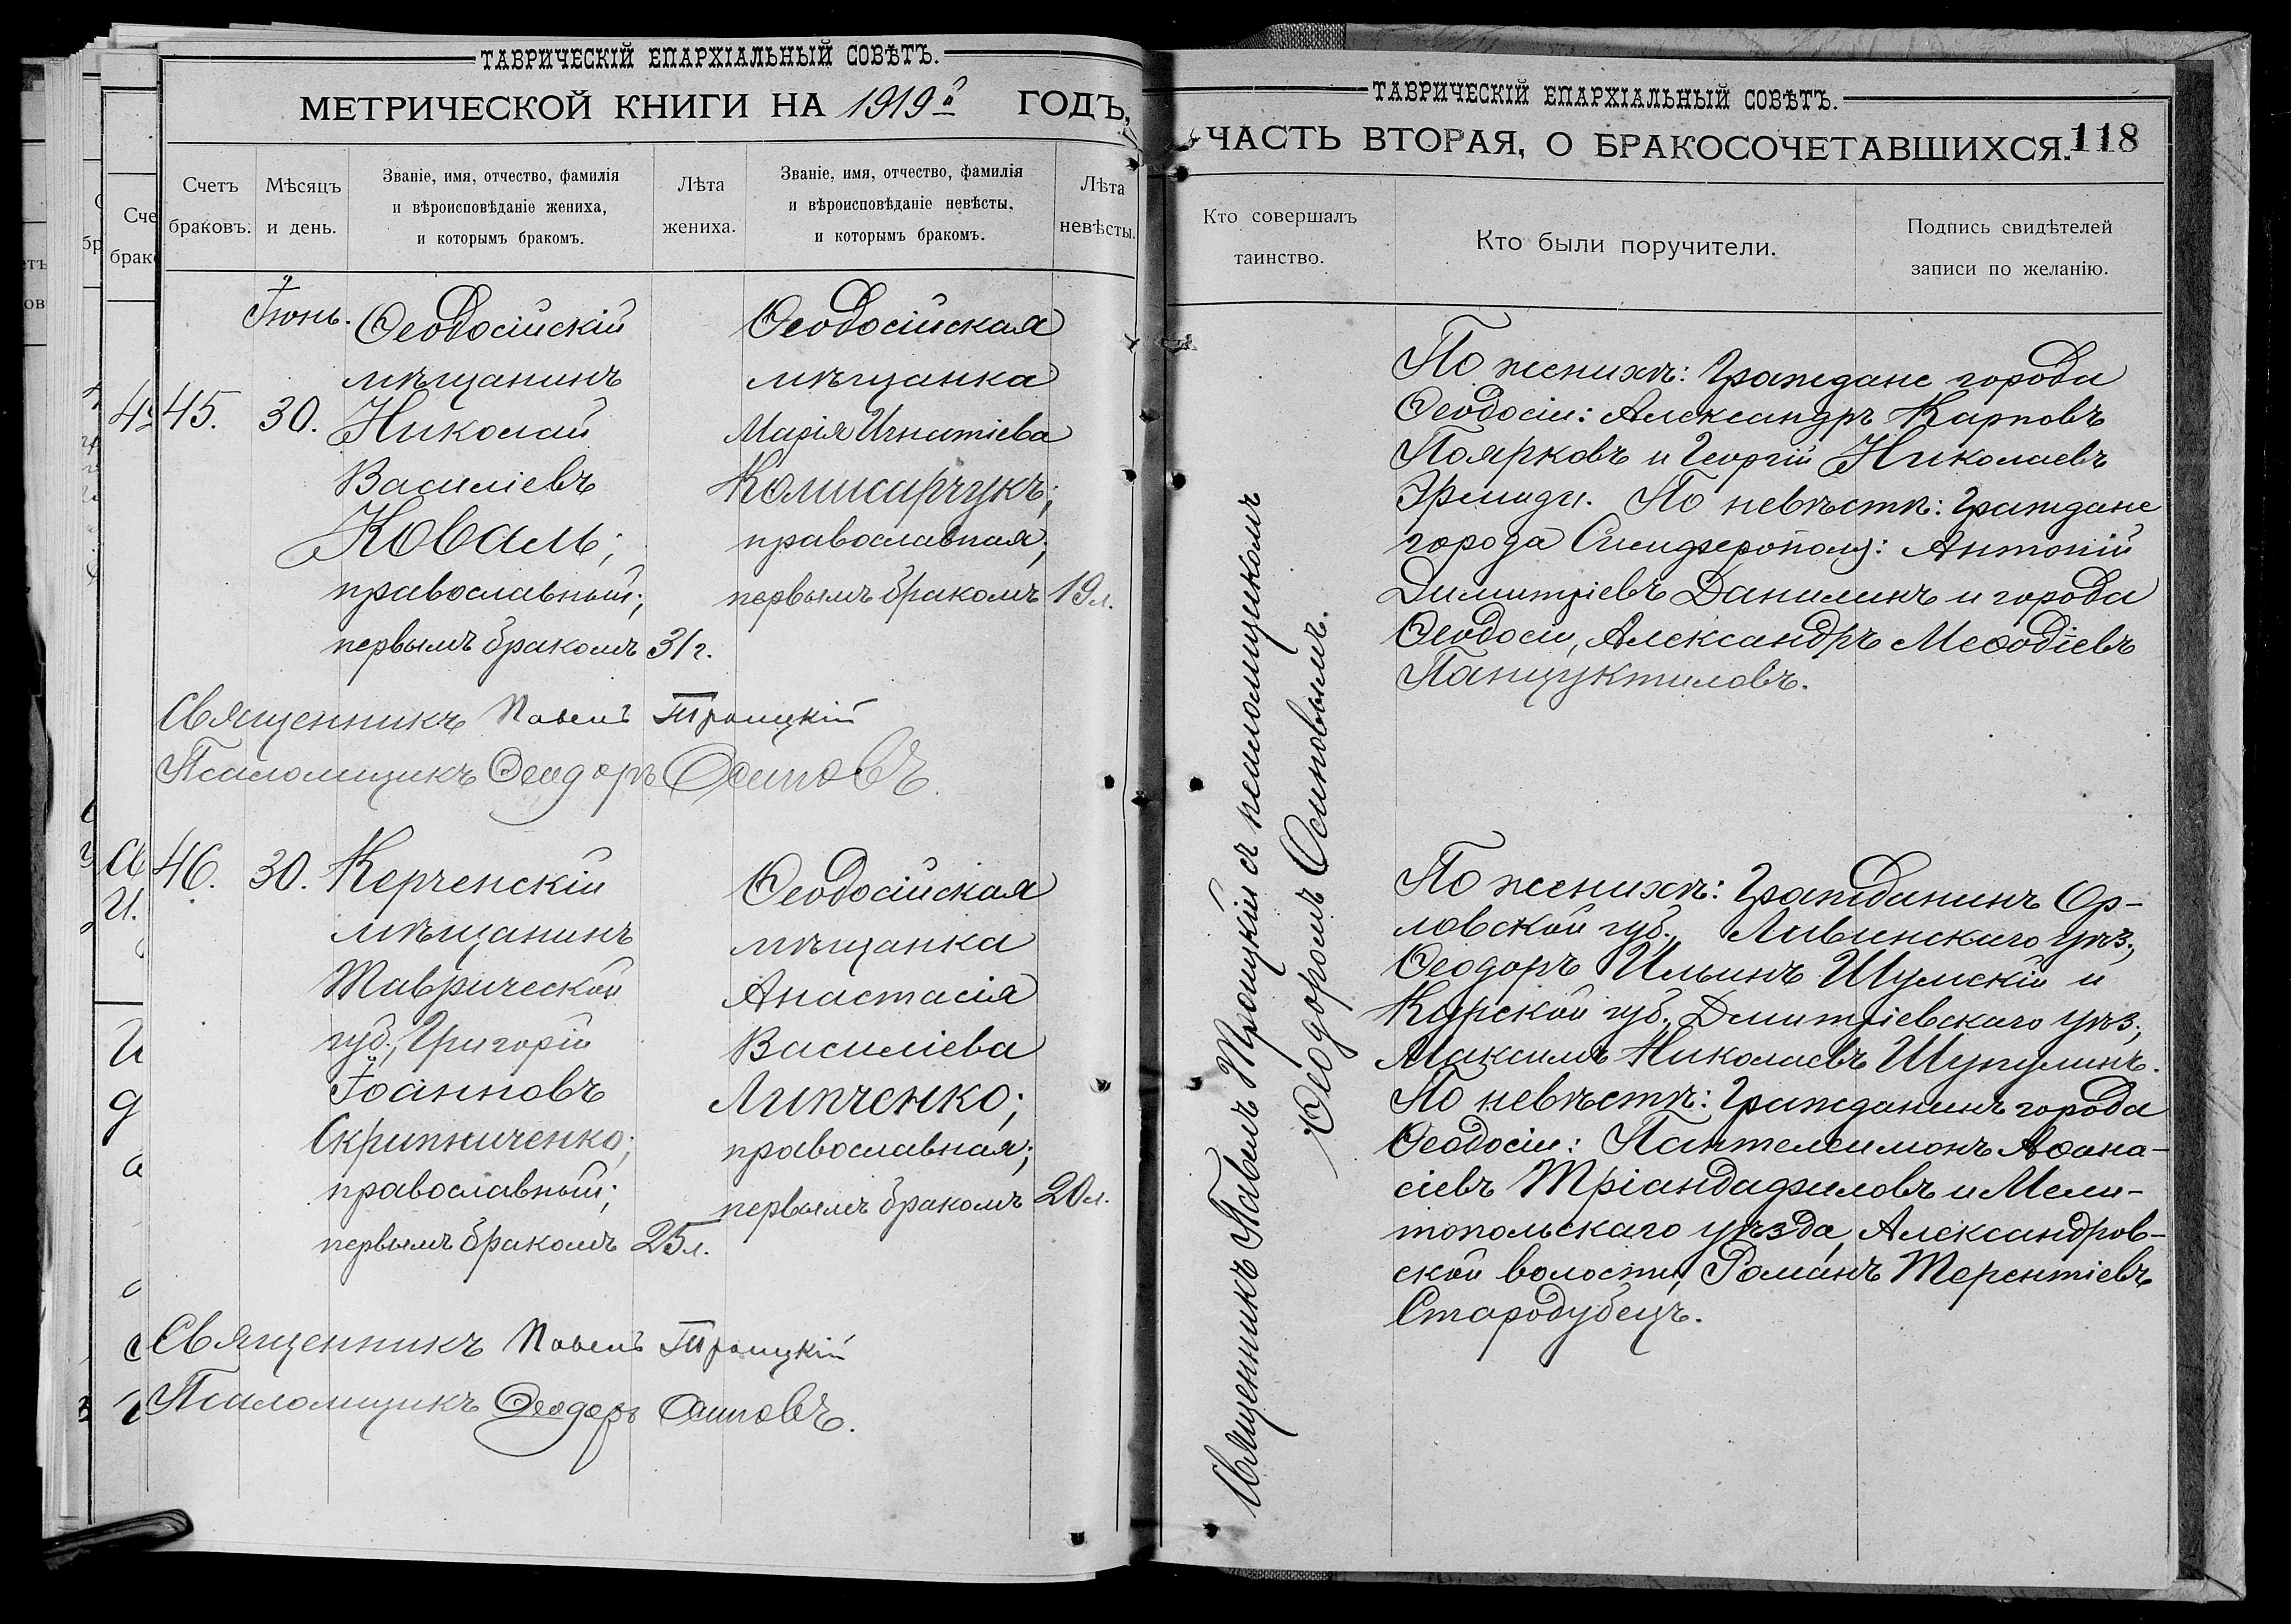 ТАВРИЧЕСКІЙ ЕПАРХІАЛЬНЫЙ СОВѢТЪ.
МЕТРИЧЕСКОЙ КНИГИ НА 1919й ГОДЪ,
Счетъ браковъ.
Мѣсяцъ и день.
Званіе, имя, отчество, фамилія
и вѣроисповѣданіе жениха,
и которымъ бракомъ.
Лѣта жениха.
Званіе, имя, отчество, фамилія
и вѣроисповѣданіе невѣсты,
и которымъ бракомъ.
Лѣта невѣсты.
45.
Іюнь.
30.
Ѳеодосійскій
мѣщанинъ
Николай
Василіевъ
Коваль;
православный;
первымъ бракомъ
31г.
Ѳеодосійская
мѣщанка
Марія Игнатіева
Комисарчукъ;
православная;
первымъ бракомъ
19л.
Священникъ Павелъ Троицкій
Псаломщикъ Ѳеодоръ Осиповъ.
46.
30.
Керченскій
мѣщанинъ
Таврической
губ., Григорій
Іоанновъ
Скрипниченко;
православный;
первымъ бракомъ
25л.
Ѳеодосійская
мѣщанка
Анастасія
Василіева
Липченко;
православная;
первымъ бракомъ
20л.
Священникъ Павелъ Троицкій
Псаломщикъ Ѳеодоръ Осиповъ.
ТАВРИЧЕСКІЙ ЕПАРХІАЛЬНЫЙ СОВѢТЪ.
ЧАСТЬ ВТОРАЯ, О БРАКОСОЧЕТАВШИХСЯ.
118
Кто совершалъ
таинство.
Кто были поручители.
Подпись свидѣтелей
записи по желанію.
Священникъ Павелъ Троицкій съ псаломщикомъ
Ѳеодоромъ Осиповымъ.
По женихѣ: Граждане города
Ѳеодосіи: Александръ Карповъ
Поярковъ и Георгій Николаевъ
По невѣстѣ: Граждане
города Симферополя: Антоній
Димитріевъ Данилинъ и города
Ѳеодосіи, Александръ Меѳодіевъ
По женихѣ: Гражданинъ Ор-
ловской губ., Ливинскаго уѣз.,
Ѳеодоръ Ильинъ Шумскій и
Курской губ., Дмитріевскаго уѣз.,
Максимъ Николаевъ
По невѣстѣ: Гражданинъ города
Ѳеодосіи: Пантелеимонъ Аѳана-
сіевъ Тріандафиловъ и Мели-
топольскаго уѣзда, Александров-
ской волости, Романъ Терентіевъ
Стародубецъ.